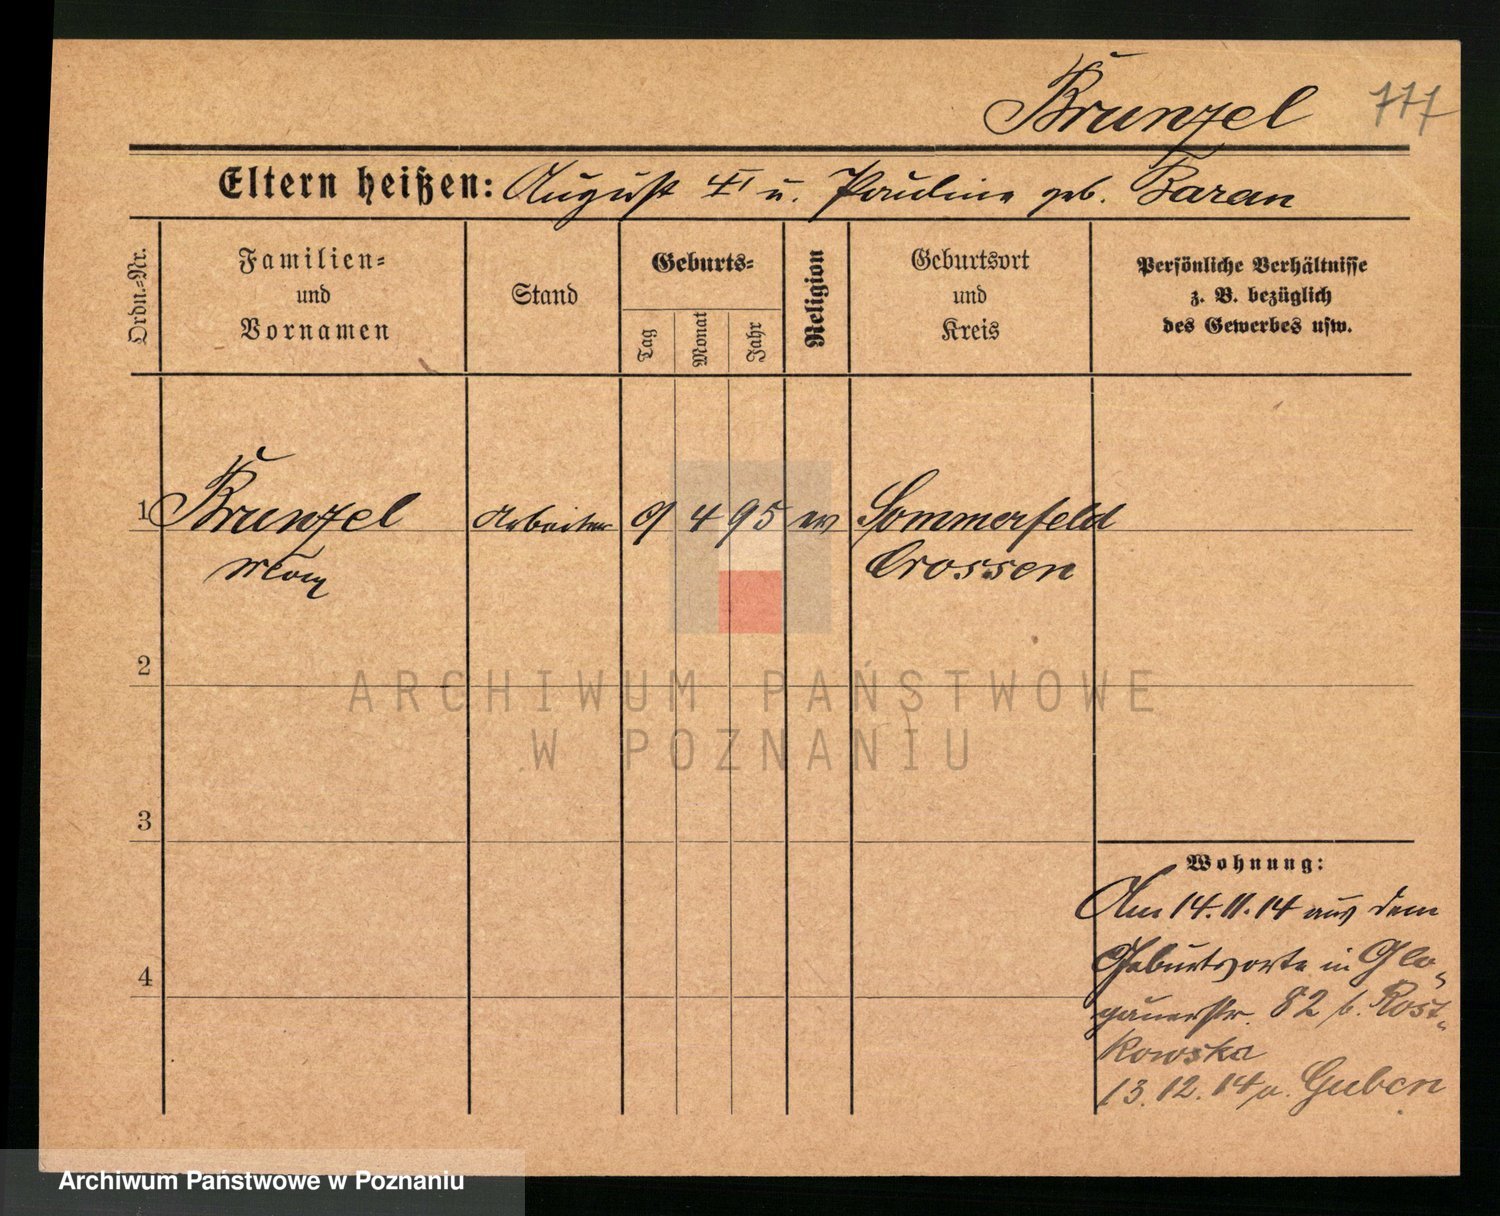 Brunzel 777
Eltern heißen: August † u. Pauline geb. Baran
Ordn.-Nr.
Familien=
und
Vornamen
Stand
Geburts=
Tag
Monat
Jahr
Religion
Geburtsort
und
Kreis
Persönliche Verhältnisse
z. B. bezüglich
des Gewerbes usw.
1 Brunzel Arbeiter 9 4 95 ev Sommerfeld
Max Crossen
2
ARCHIWUM PAŃSTWOWE
W POZNANIU
3
Wohnung:
Am 14.11.14 aus dem
Geburtsorte in Glo„
gauerstr. 82 b. Rost„
kowska
13.12.14 n. Guben
4
Archiwum Państwowe w Poznaniu